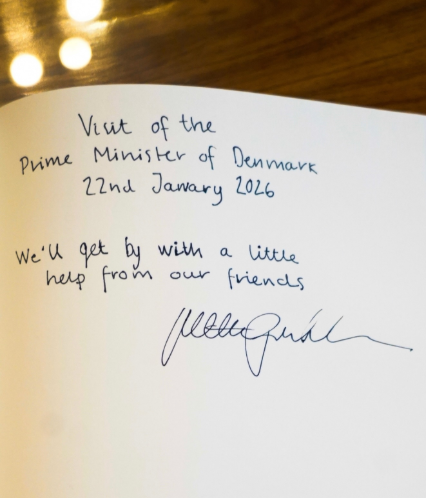 Visit of the
Prime Minister of Denmark
22nd January 2026
We'll get by with a little
help from our friends